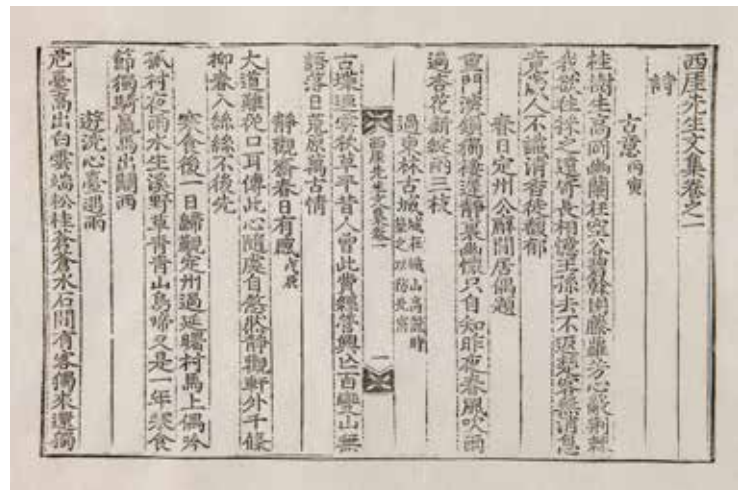 西厓先生文集卷之一
詩
古意丙寅
桂樹生高岡幽蘭在空谷碧幹困藤蘿芳心蔽荊棘
我欲往採之遺寄長相憶王孫去不返楚客無消息
意寫人不識清香徒馥郁
春日定州公廨閒居偶題
重門深鎖獨棲遲靜裏幽懷只自知昨夜春風吹雨
過杏花新綻兩三枝
過東林古城城在鐵山高麗時築之以防契丹
西厓先生文集卷一
一
古堞連雲秋草平昔人曾此費經營興亡百變山無
語落日荒原萬古情
靜觀齋春日有感戊辰
大道難從口耳傳此心隨處自悠然靜觀軒外千條
柳春入絲絲不後先
寒食後一日歸觀定州過延曙村馬上偶吟
孤村夜雨水生溪野草青青山鳥啼又是一年寒食
節獨騎羸馬出關西
遊洗心臺遇雨
危臺高出白雲端松桂蒼蒼水石間有客獨來還獨